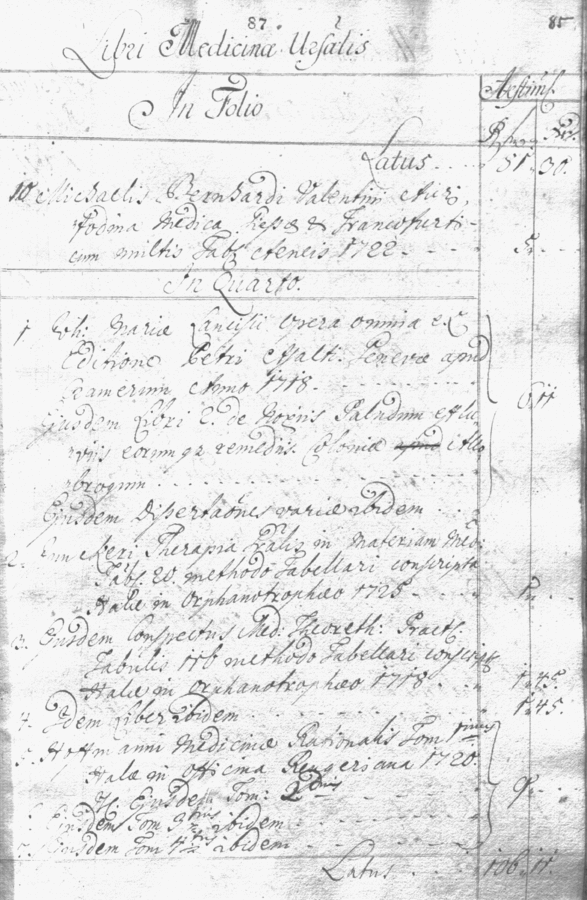 87 85
Libri Medicinæ Ursalis
In Folio
Æstim.
Latus . . . 51. 30.
10 Michaelis Bernhardi Valentini Auri,
fodina Medica Francofurti
cum multis Tab. Æneis 1722.
In Quarto.
1 Joh: Mariæ Lancisii Opera omnia ex
Editione Petri Assalti. Genevæ apud
Cramerum Anno 1718. 6 11
Ejusdem Libri 2. de Noxiis Paludum efflu
viis eorumqz remediis. Coloniæ apud Allo
brogum
Ejusdem Dissertationes variæ ibidem
2. Junckeri Therapia Gralis in Materiam Medi
Tabs. 20. methodo Tabellari conscripta
Halæ in Orphanotropheo 1725
3. Ejusdem Conspectus Med: Theoreth: Pract.
Tabulis 116 methodo Tabellari conscrip
Halæ in Orphanotropheo 1718 1. 45.
4. Idem Liber ibidem 1. 45
5. Hoffmanni Medicinæ Rationalis Tom. primus
Halæ in officina Rengeriana 1720. 9.
Ejusdem Tom: 2dus
Ejusdem Tom 3tius ibidem
7. Ejusdem Tom 4tus ibidem
Latus 106. 11.